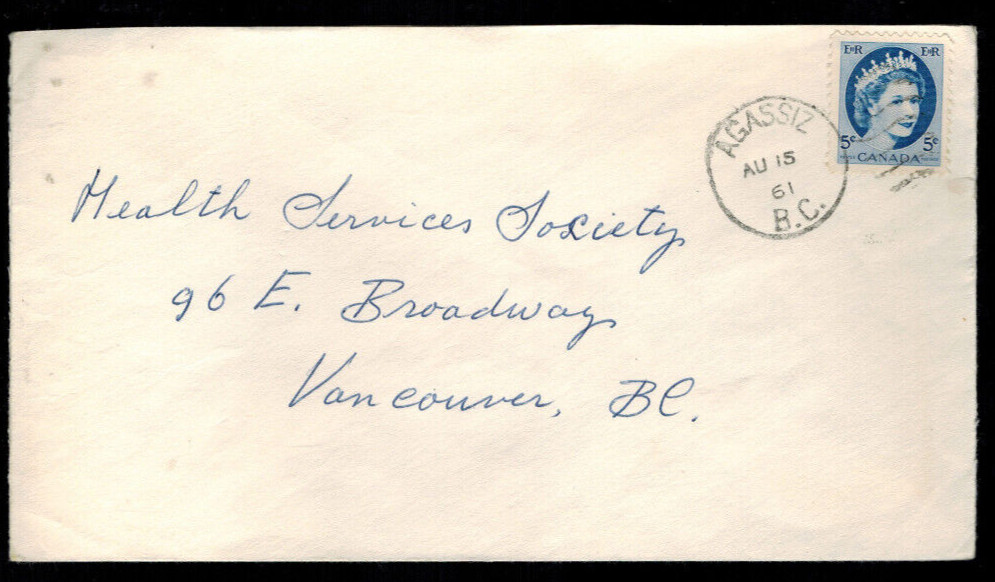 E II R E II R
5¢ 5¢
CANADA
AGASSIZ
AU 15
61
B.C.
Health Services Society
96 E. Broadway
Vancouver, BC.